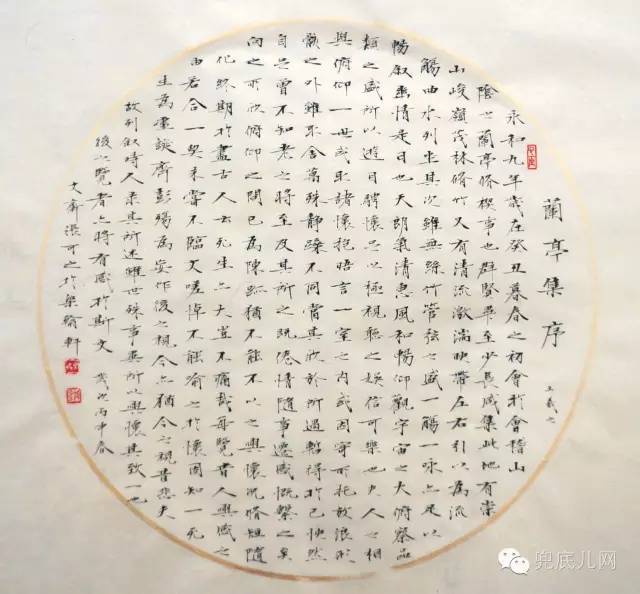 蘭亭集序
王羲之
永和九年歲在癸丑暮春之初會於會稽山
陰之蘭亭脩禊事也群賢畢至少長咸集此地有崇
山峻嶺茂林脩竹又有清流激湍映帶左右引以為流
觴曲水列坐其次雖無絲竹管弦之盛一觴一詠亦足以
暢敘幽情是日也天朗氣清惠風和暢仰觀宇宙之大俯察品
類之盛所以遊目騁懷足以極視聽之娛信可樂也夫人之相
與俯仰一世或取諸懷抱晤言一室之內或因寄所託放浪形
骸之外雖取舍萬殊靜躁不同當其欣於所遇暫得於己快然
自足曾不知老之將至及其所之既倦情隨事遷感慨繫之矣
向之所欣俯仰之間已為陳跡猶不能不以之興懷況脩短隨
化終期於盡古人云死生亦大豈不痛哉每覽昔人興感之
由若合一契未嘗不臨文嗟悼不能喻之於懷固知一死
生為虛誕齊彭殤為妄作後之視今亦猶今之視昔悲夫
故列敘時人錄其所述雖世殊事異所以興懷其致一也
後之覽者亦將有感於斯文 歲次丙申春
文齋洪可之於染翰軒
兜底儿网